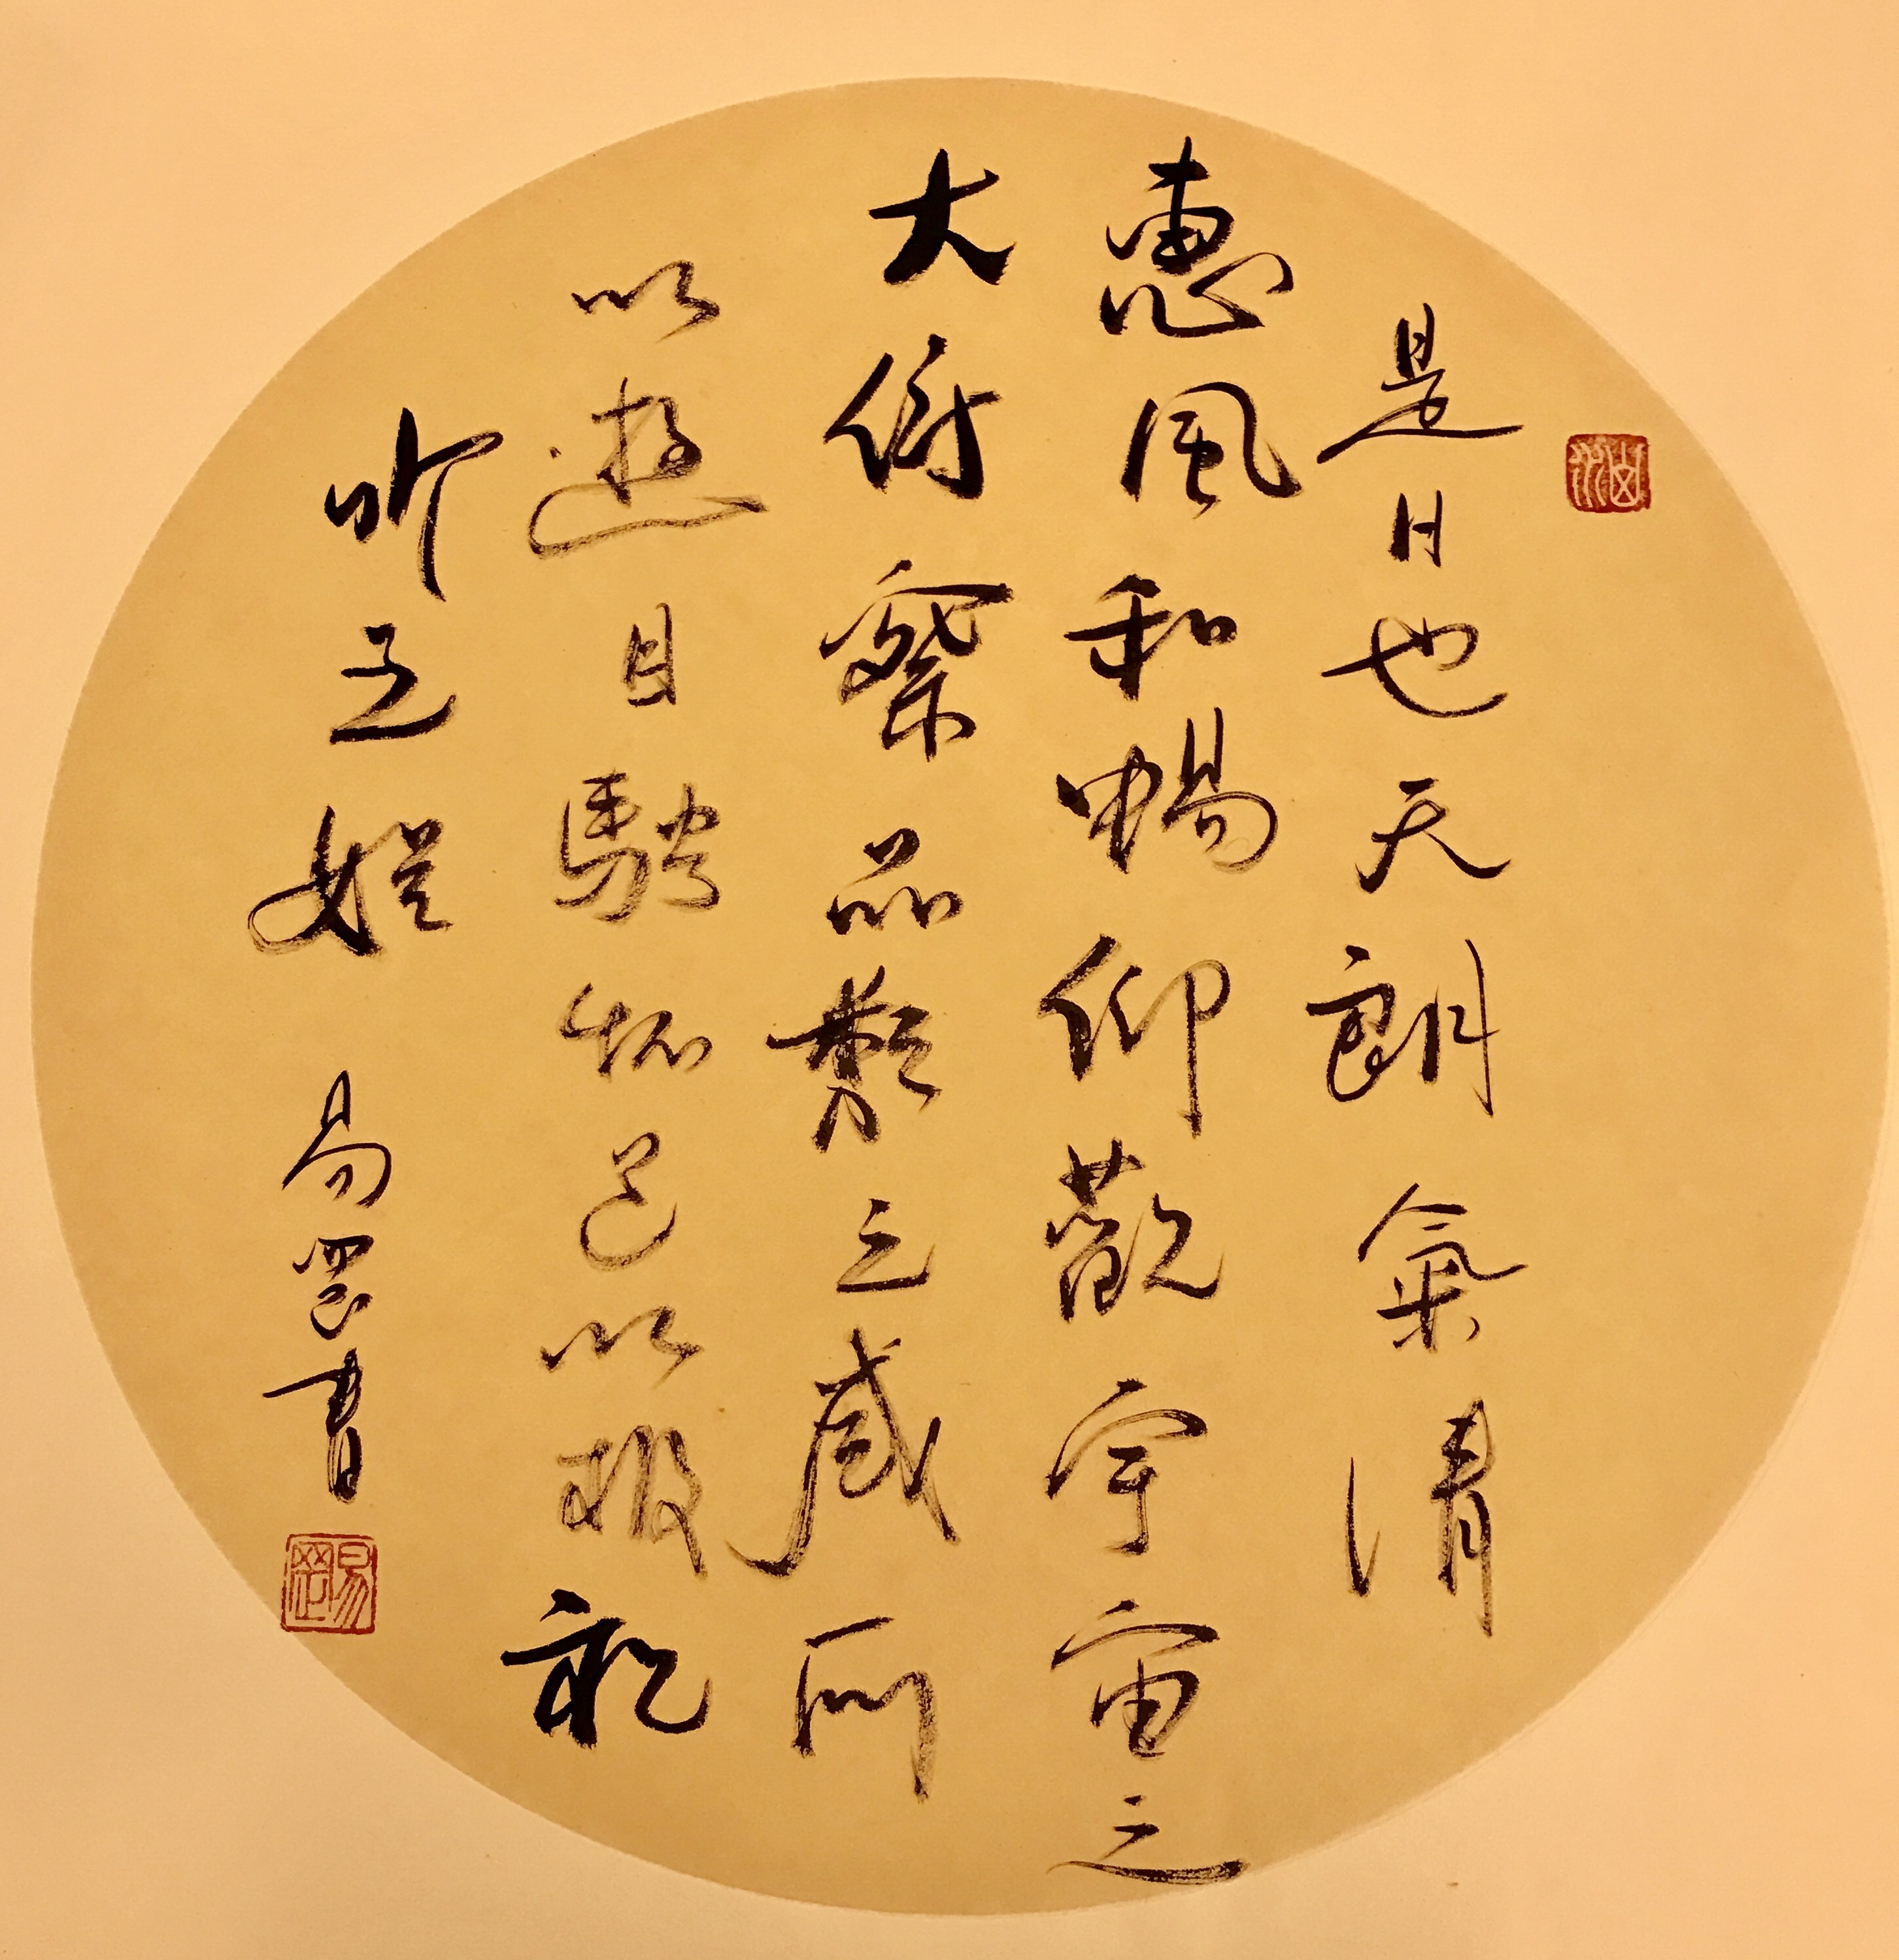 是日也天朗氣清
惠風和暢仰觀宇宙之
大俯察品類之盛所
以遊目騁怀足以極視
听之娛 易罡書
易罡